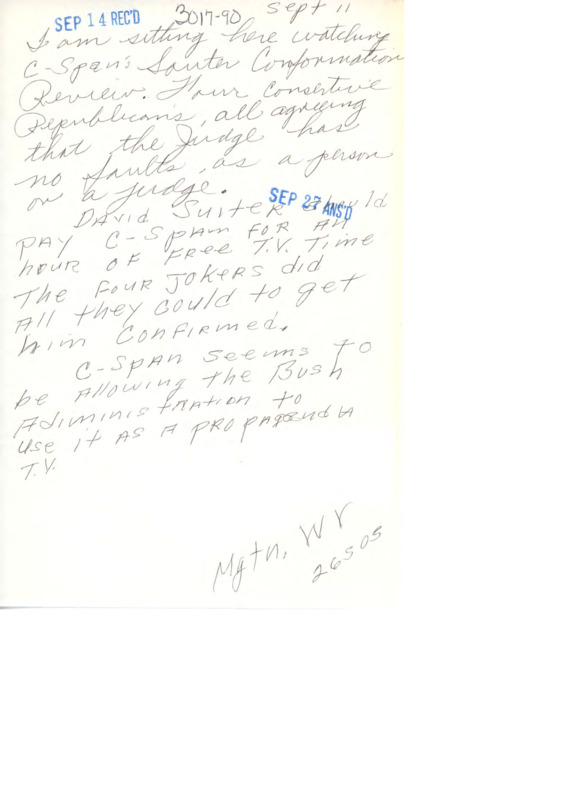 Sept 11
SEP 14 REC'D 3017-90
I am sitting here watching
C-Span's Souter Conformation
Review. Four Consertive
Republicans, all agreeing
that the Judge has
no faults, as a person
or a judge.
SEP 27 ANS'D
DAVID SUITER should
PAY C-SPAN FOR AN
hour OF FREE T.V. Time
The Four JOKERS did
All they could to get
him CONFIRMED.
C-SPAN Seems to
be Allowing the Bush
Adiministration to
Use it AS A PROPAGENDA
T.V.
Mgtn, WV
26505